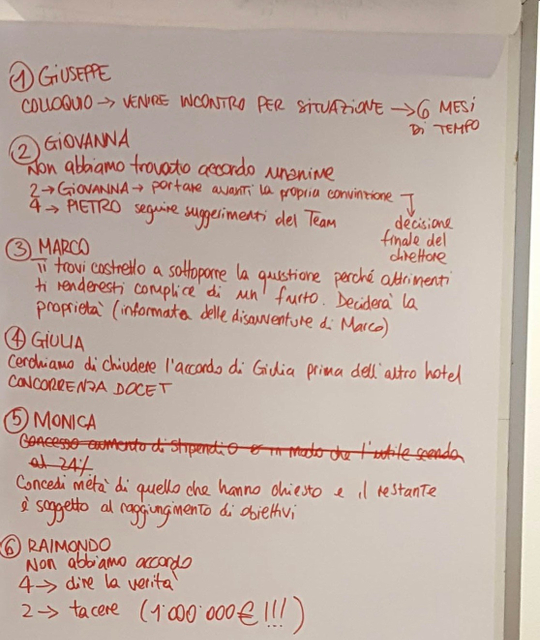 ① GIUSEPPE
COLLOQUIO → VENIRE INCONTRO PER SITUAZIONE → 6 MESI
DI TEMPO
② GIOVANNA
Non abbiamo trovato accordo unanime
2 → GIOVANNA → portare avanti la propria convinzione
4 → PIETRO seguire suggerimenti del Team
decisione
finale del
direttore
③ MARCO
Ti trovi costretto a sottoporre la questione perché altrimenti
ti renderesti complice di un furto. Deciderà la
proprietà (informata delle disavventure di Marco)
④ GIULIA
Cerchiamo di chiudere l'accordo di Giulia prima dell'altro hotel
CONCORRENZA DOCET
⑤ MONICA
Concesso aumento di stipendio e in modo che l'utile scenda
al 24%
Concedi metà di quello che hanno chiesto e il restante
è soggetto al raggiungimento di obiettivi
⑥ RAIMONDO
Non abbiamo accordo
4 → dire la verità
2 → tacere (1'000'000€!!!)